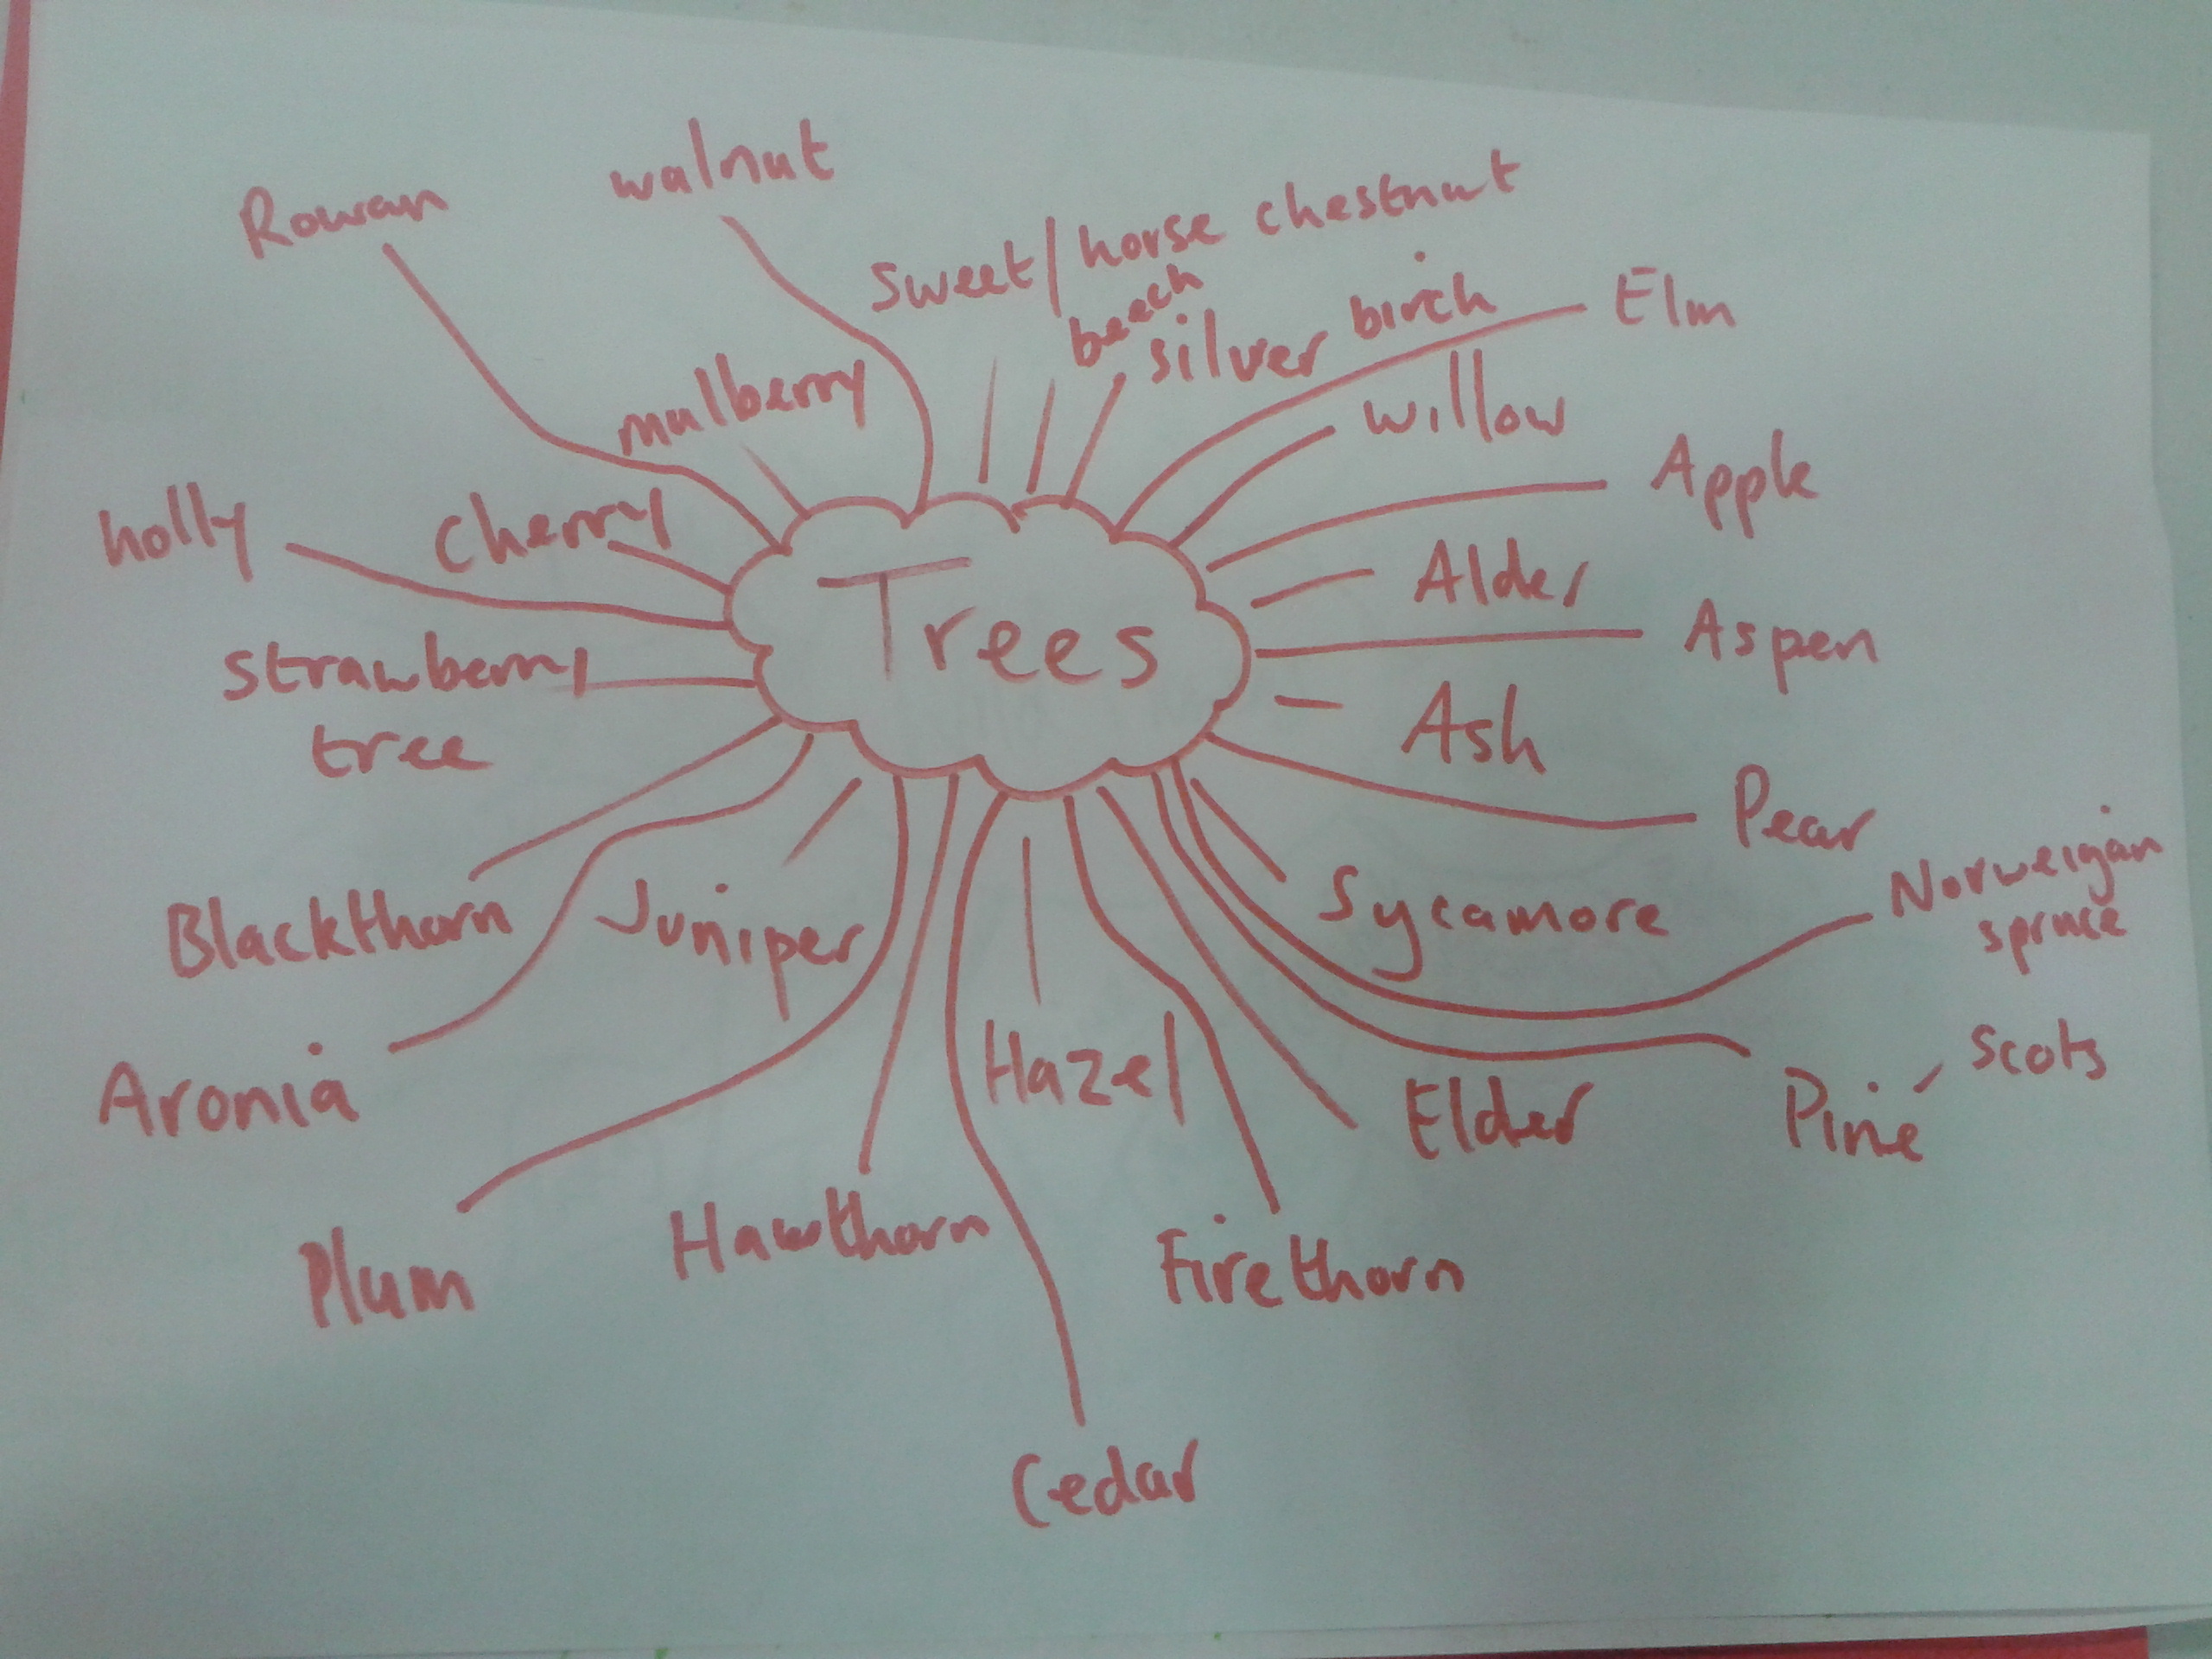 walnut
Rowan
sweet/horse chestnut
beech
silver birch
Elm
mulberry
willow
Apple
holly
cherry
Alder
Trees
Aspen
strawberry
tree
Ash
Pear
Blackthorn
Juniper
Sycamore
Norweigan
spruce
Aronia
Hazel
Elder
Pine
Scots
Plum
Hawthorn
Firethorn
Cedar